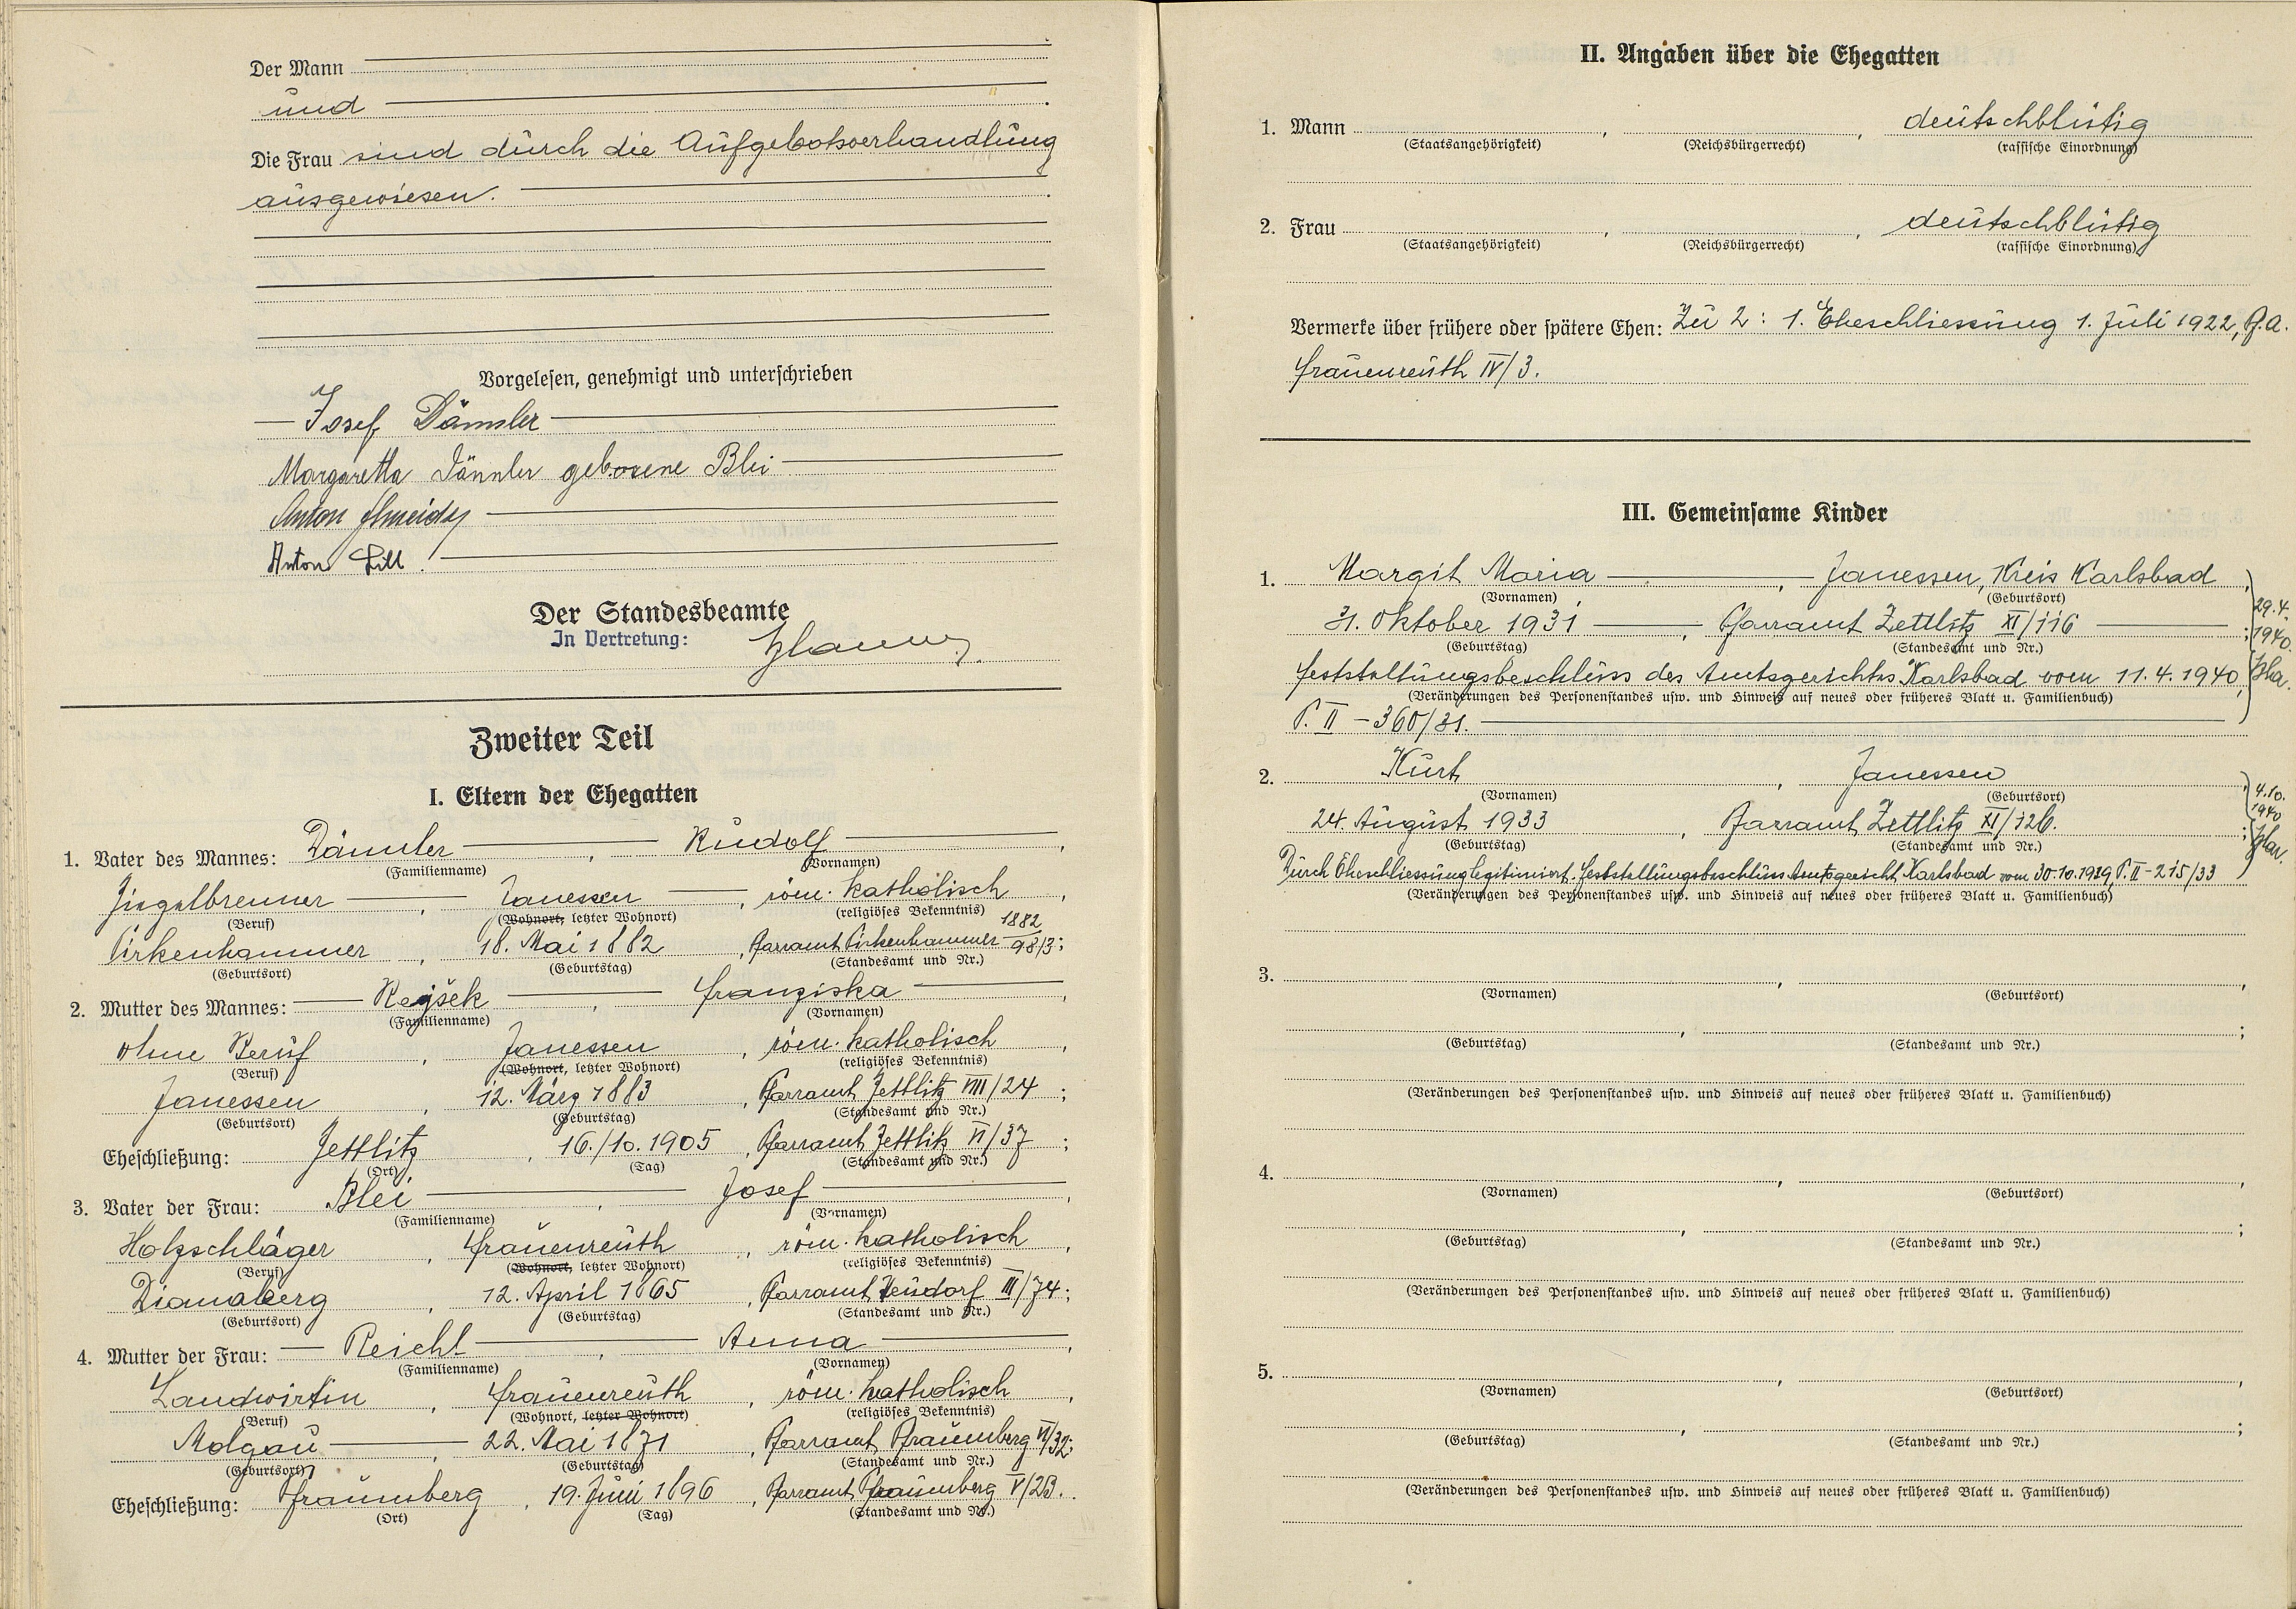 Der Mann
und
Die Frau sind durch die Aufgebotsverhandlung
ausgewiesen.
Vorgelesen, genehmigt und unterschrieben
Josef Dämmler
Margaretha Dämmler geborene Blei
Anton
Anton Lill.
Der Standesbeamte
In Vertretung:
Zweiter Teil
I. Eltern der Ehegatten
1. Vater des Mannes: Dämmler, Rudolf,
(Familienname) (Vornamen)
Ziegelbrenner, Janessen, röm. katholisch,
(Beruf) (Wohnort, letzter Wohnort) (religiöses Bekenntnis)
Pirkenhammer, 18. Mai 1882, Pfarramt Pirkenhammer 1882 98/3;
(Geburtsort) (Geburtstag) (Standesamt und Nr.)
2. Mutter des Mannes: Rejšek, Franziska,
(Familienname) (Vornamen)
ohne Beruf, Janessen, röm. katholisch,
(Beruf) (Wohnort, letzter Wohnort) (religiöses Bekenntnis)
Janessen, 12. März 1883, Pfarramt Zettlitz VIII/24;
(Geburtsort) (Geburtstag) (Standesamt und Nr.)
Eheschließung: Zettlitz, 16./10. 1905, Pfarramt Zettlitz VI/37;
(Ort) (Tag) (Standesamt und Nr.)
3. Vater der Frau: Blei, Josef,
(Familienname) (Vornamen)
Holzschläger, Frauenreuth, röm. katholisch,
(Beruf) (Wohnort, letzter Wohnort) (religiöses Bekenntnis)
Dianaberg, 12. April 1865, Pfarramt Neudorf III/74;
(Geburtsort) (Geburtstag) (Standesamt und Nr.)
4. Mutter der Frau: Reichl, Anna,
(Familienname) (Vornamen)
Landwirtin, Frauenreuth, röm. katholisch,
(Beruf) (Wohnort, letzter Wohnort) (religiöses Bekenntnis)
Molgau, 22. Mai 1871, Pfarramt Pfraumberg VI/32;
(Geburtsort) (Geburtstag) (Standesamt und Nr.)
Eheschließung: Pfraumberg, 19. Juni 1896, Pfarramt Pfraumberg V/23.
(Ort) (Tag) (Standesamt und Nr.)
II. Angaben über die Ehegatten
1. Mann , , deutschblütig
(Staatsangehörigkeit) (Reichsbürgerrecht) (rassische Einordnung)
2. Frau , , deutschblütig
(Staatsangehörigkeit) (Reichsbürgerrecht) (rassische Einordnung)
Vermerke über frühere oder spätere Ehen: Zu 2: 1. Eheschliessung 1. Juli 1922, Pf.A.
Frauenreuth IV/3.
III. Gemeinsame Kinder
1. Margit Maria, Janessen, Kreis Karlsbad,
(Vornamen) (Geburtsort)
31. Oktober 1931, Pfarramt Zettlitz XI/116;
29.4. 1940
(Geburtstag) (Standesamt und Nr.)
Feststellungsbeschluss des Amtsgerichtes Karlsbad vom 11.4.1940,
(Veränderungen des Personenstandes usw. und Hinweis auf neues oder früheres Blatt u. Familienbuch)
P. II - 360/31.
2. Kurt, Janessen,
(Vornamen) (Geburtsort)
4.10. 1940
24. August 1933, Pfarramt Zettlitz XI/126.;
(Geburtstag) (Standesamt und Nr.)
Durch Eheschliessung legitimiert. Feststellungsbeschluss Amtsgericht Karlsbad vom 30.10.1939, P. II - 215/33
(Veränderungen des Personenstandes usw. und Hinweis auf neues oder früheres Blatt u. Familienbuch)
3. , ,
(Vornamen) (Geburtsort)
, ;
(Geburtstag) (Standesamt und Nr.)
(Veränderungen des Personenstandes usw. und Hinweis auf neues oder früheres Blatt u. Familienbuch)
4. , ,
(Vornamen) (Geburtsort)
, ;
(Geburtstag) (Standesamt und Nr.)
(Veränderungen des Personenstandes usw. und Hinweis auf neues oder früheres Blatt u. Familienbuch)
5. , ,
(Vornamen) (Geburtsort)
, ;
(Geburtstag) (Standesamt und Nr.)
(Veränderungen des Personenstandes usw. und Hinweis auf neues oder früheres Blatt u. Familienbuch)